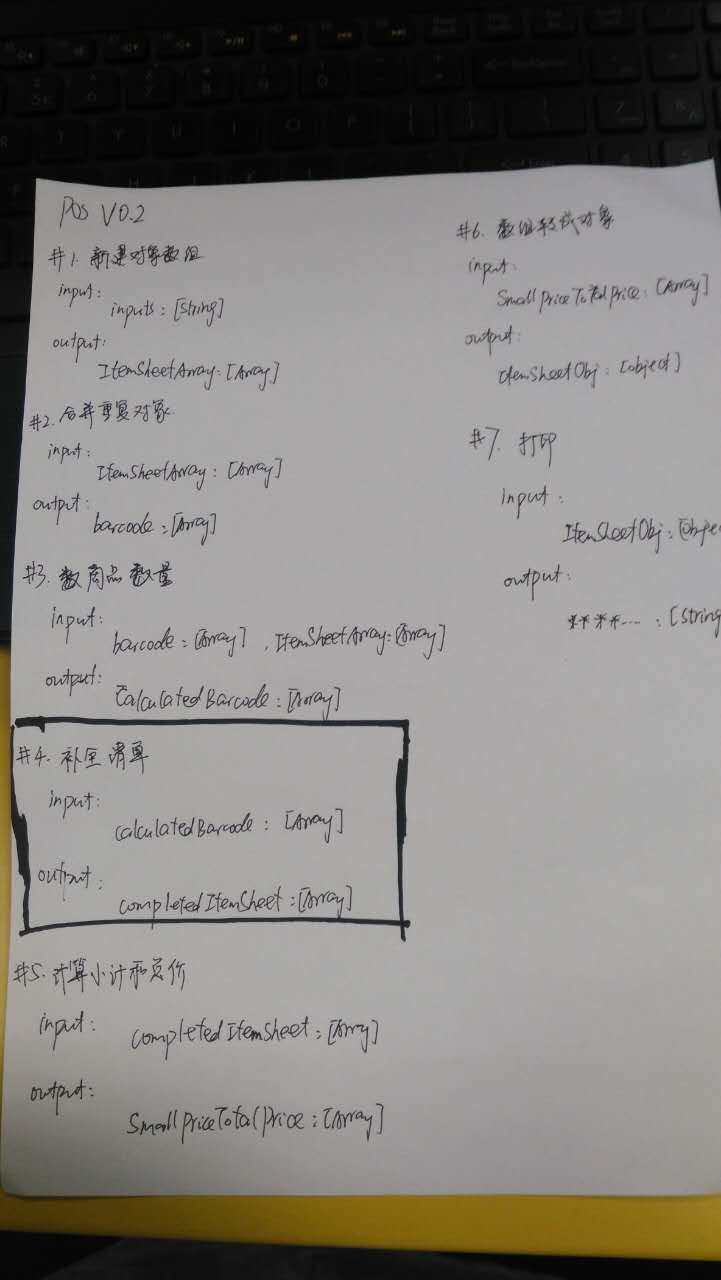 POS V0.2
#1. 新建对象数组
input:
inputs: [String]
output:
ItemSheetArray: [Array]
#2. 合并重复对象
input:
ItemSheetArray: [Array]
output:
barcode: [Array]
#3. 数商品数量
input:
barcode: [Array], ItemSheetArray: [Array]
output:
CalculatedBarcode: [Array]
#4. 补全清单
input:
CalculatedBarcode: [Array]
output:
completedItemSheet: [Array]
#5. 计算小计和总价
input: completedItemSheet: [Array]
output:
SmallPriceTotalPrice: [Array]
#6. 数组转成对象
input:
SmallPriceTotalPrice: [Array]
output:
ItemSheetObj: [object]
#7. 打印
input:
ItemSheetObj: [Objec
output:
****....: [String